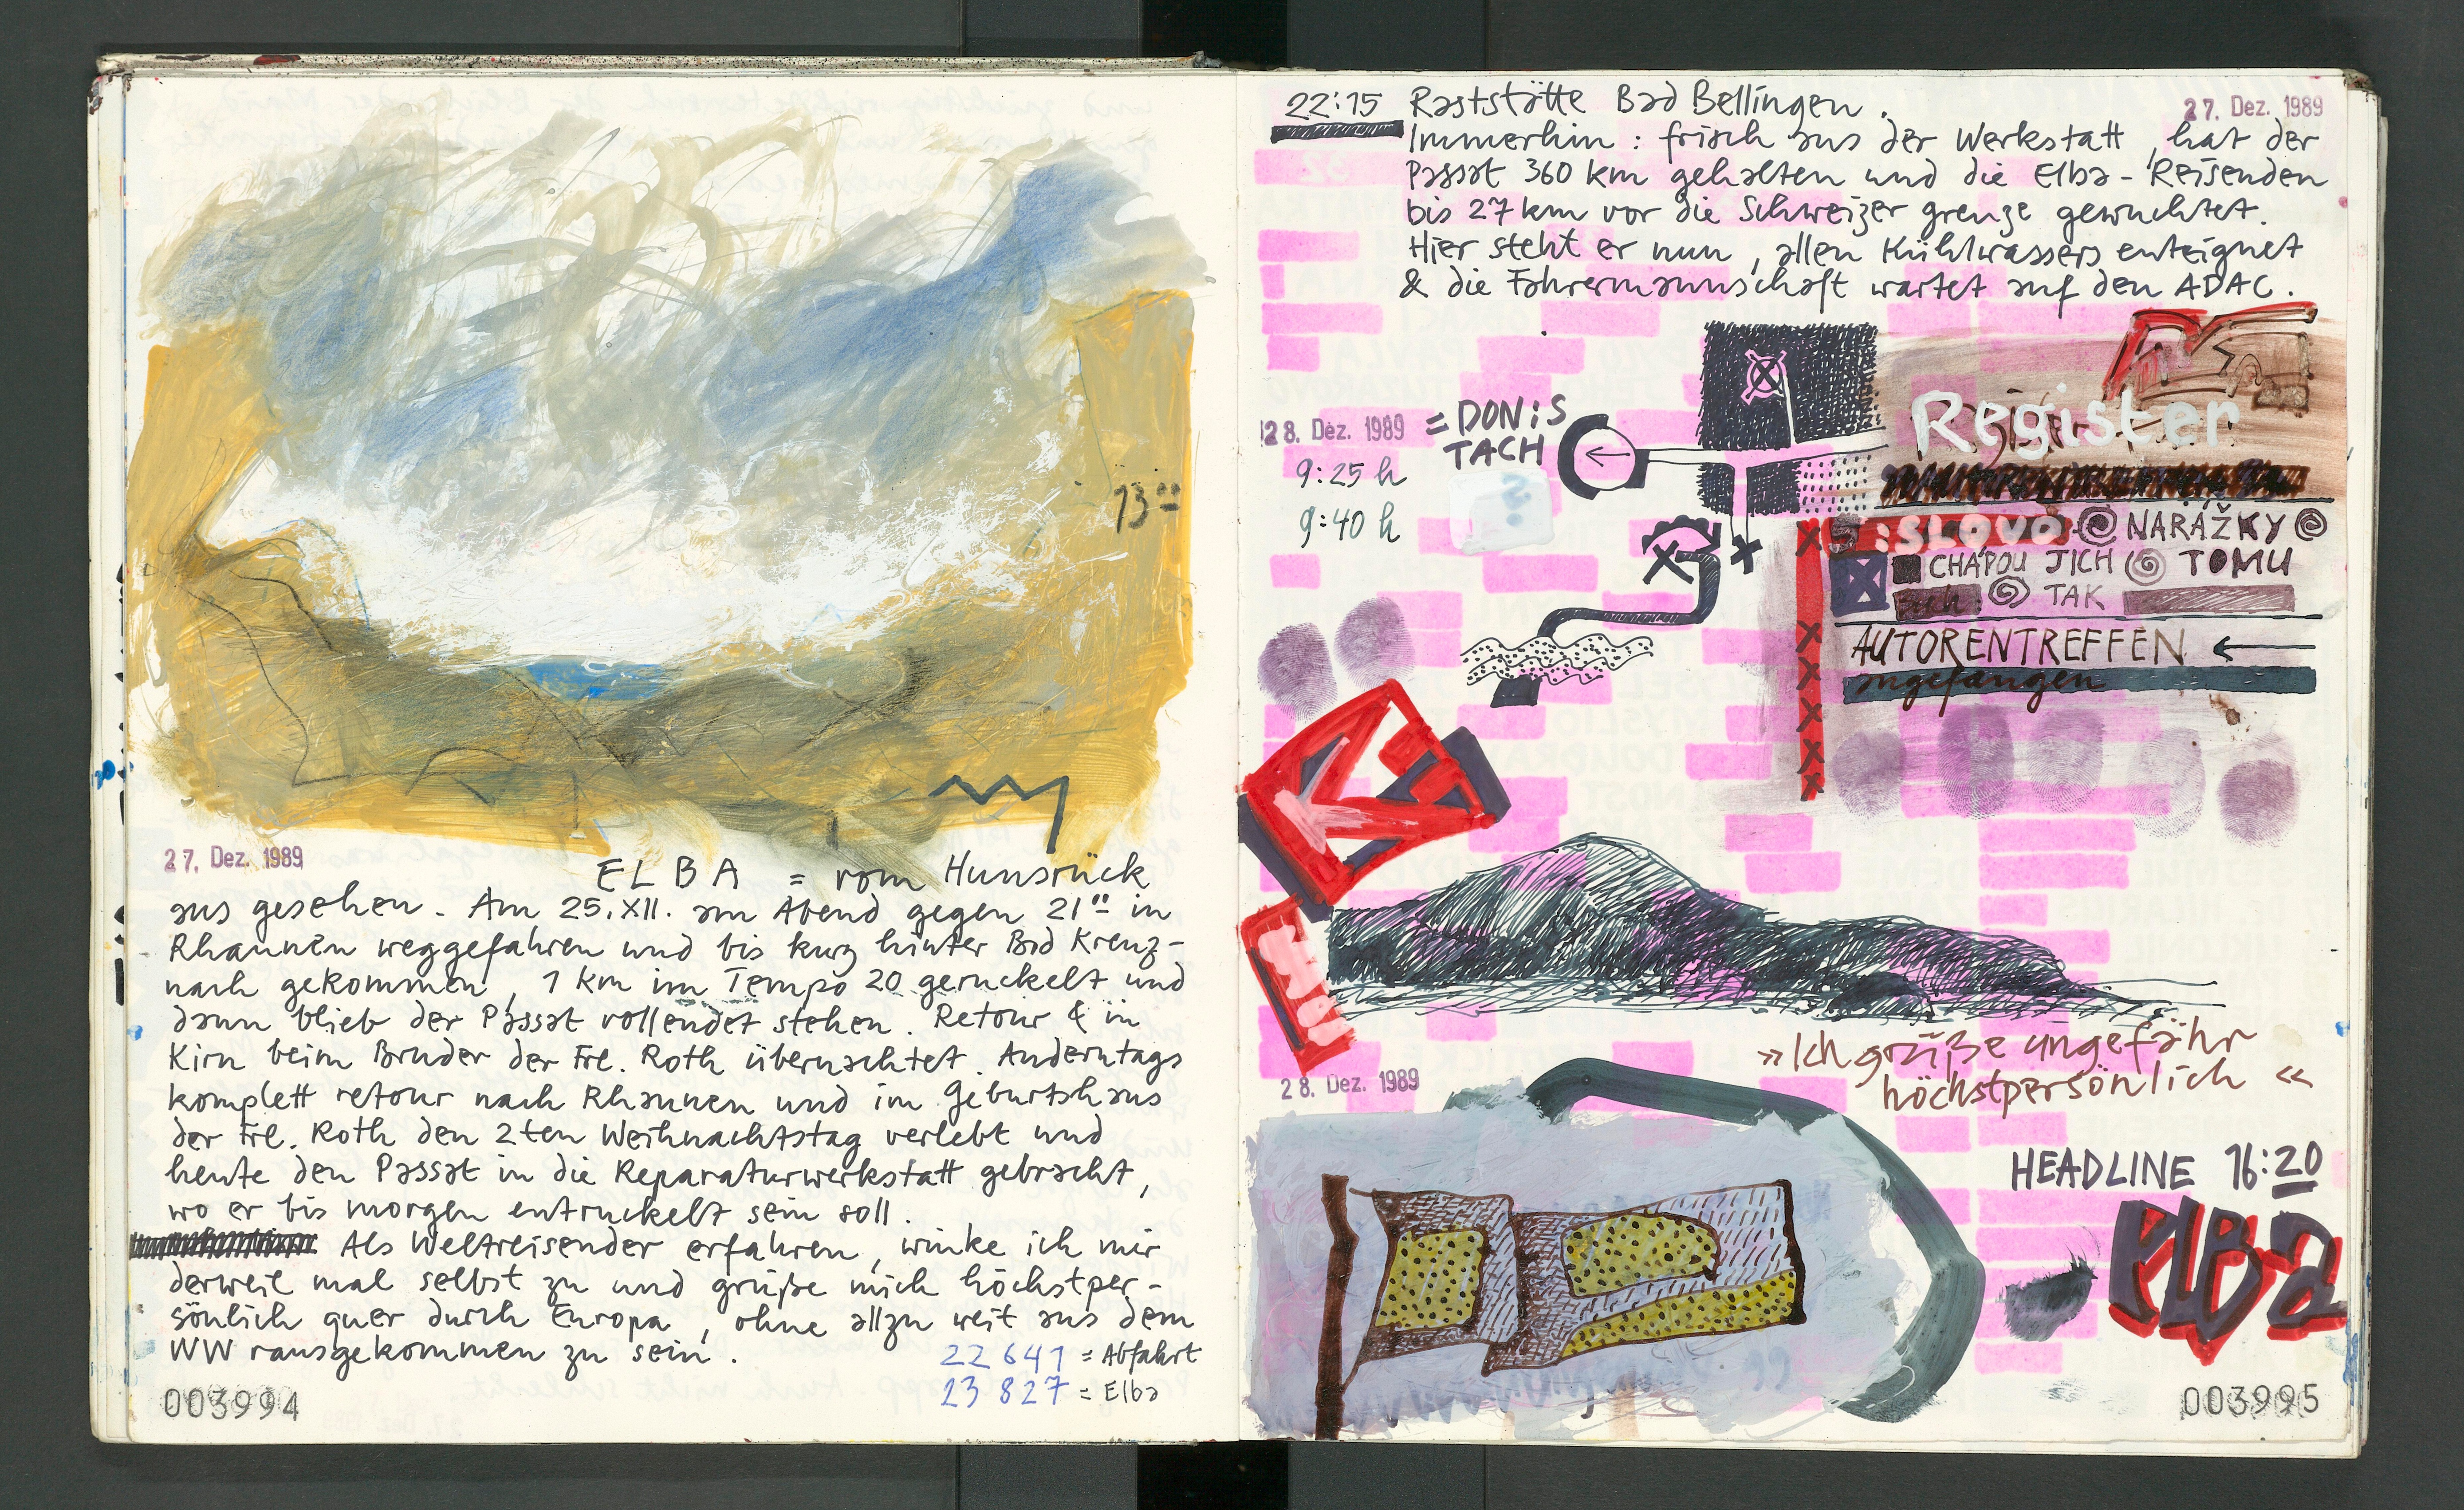 13⁰⁰
27. Dez. 1989
ELBA = vom Hunsrück
aus gesehen. Am 25.XII. am Abend gegen 21⁰⁰ in
Rhaunen weggefahren und bis kurz hinter Bad Kreuz-
nach gekommen, 1 km im Tempo 20 geruckelt und
dann blieb der Passat vollendet stehen. Retour & in
Kirn beim Bruder der Frl. Roth übernachtet. Anderntags
komplett retour nach Rhaunen und im Geburtshaus
der Frl. Roth den 2ten Weihnachtstag verlebt und
heute den Passat in die Reparaturwerkstatt gebracht,
wo er bis morgen entruckelt sein soll.
Als Weltreisender erfahren, winke ich mir
derweil mal selbst zu und grüße mich höchstper-
sönlich quer durch Europa, ohne allzu weit aus dem
WW rausgekommen zu sein.
22 641 = Abfahrt
23 827 = Elba
003994
22:15 Raststätte Bad Bellingen.
27. Dez. 1989
Immerhin: frisch aus der Werkstatt, hat der
Passat 360 km gehalten und die Elba-Reisenden
bis 27 km vor die Schweizer grenze gewuchtet.
Hier steht er nun, allen Kühlwassers enteignet
& die Fahrermannschaft wartet auf den ADAC.
28. Dez. 1989
= DONiS
TACH
9:25 h
9:40 h
Register
:SLOVO @ NARÁŽKY @
CHÁPOU JICH @ TOMU
TAK
AUTORENTREFFEN ←
angefangen
»Ich grüße ungefähr
höchstpersönlich «
28. Dez. 1989
HEADLINE 16:20
ELBa
003995